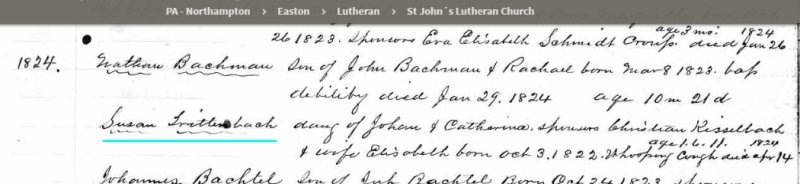 PA - Northampton > Easton > Lutheran > St John´s Lutheran Church
age 3 mo. 1824
26 1823. sponsors Eva Elisabeth Schmidt Croup died Jan 26
1824. Nathan Bachman son of John Bachman & Rachael born Mar 8 1823. bap
debility died Jan 29. 1824 age 10 m 21 d
Susan Trittenbach daug of Johan & Catherina. sponsors Christian Kisselbach
age 1. 6. 11. 1824
& wife Elisabeth born Oct 3. 1822. Whooping Cough died Apr 14
Johannes Bachtel son of Bachtel Born Oct 24 1823